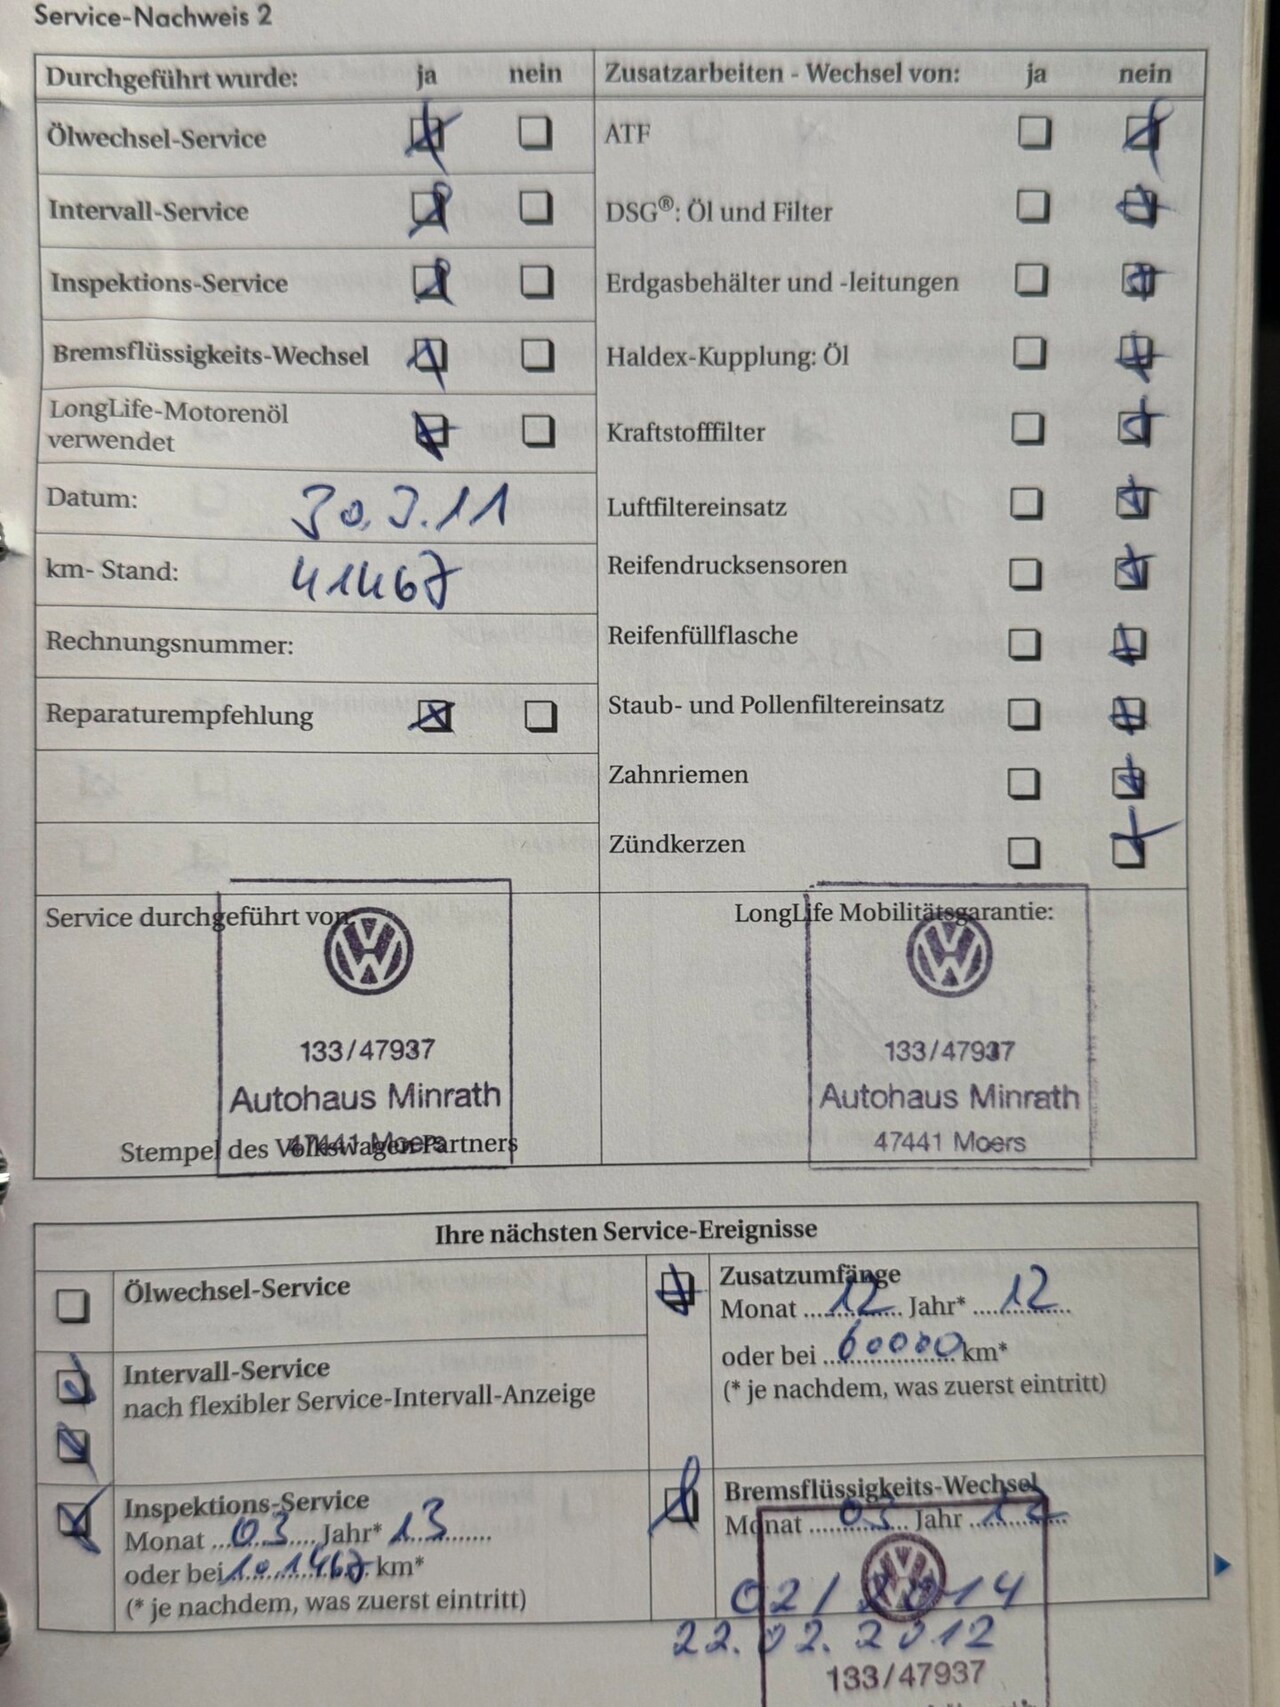 Service-Nachweis 2
Durchgeführt wurde: ja nein
Ölwechsel-Service
Intervall-Service
Inspektions-Service
Bremsflüssigkeits-Wechsel
LongLife-Motorenöl
verwendet
Datum: 30.3.11
km- Stand: 41467
Rechnungsnummer:
Reparaturempfehlung
Zusatzarbeiten - Wechsel von: ja nein
ATF
DSG®: Öl und Filter
Erdgasbehälter und -leitungen
Haldex-Kupplung: Öl
Kraftstofffilter
Luftfiltereinsatz
Reifendrucksensoren
Reifenfüllflasche
Staub- und Pollenfiltereinsatz
Zahnriemen
Zündkerzen
Service durchgeführt von:
VW
133/47937
Autohaus Minrath
47441 Moers
Stempel des Volkswagen Partners
LongLife Mobilitätsgarantie:
VW
133/47937
Autohaus Minrath
47441 Moers
Ihre nächsten Service-Ereignisse
Ölwechsel-Service
Intervall-Service
nach flexibler Service-Intervall-Anzeige
Inspektions-Service
Monat ...03.... Jahr* 13........
oder bei 101467 km*
(* je nachdem, was zuerst eintritt)
Zusatzumfänge
Monat ....12.... Jahr* ....12...
oder bei ..60000 km*
(* je nachdem, was zuerst eintritt)
Bremsflüssigkeits-Wechsel
Monat ....03... Jahr
VW
02/2014
22.02.2012
133/47937